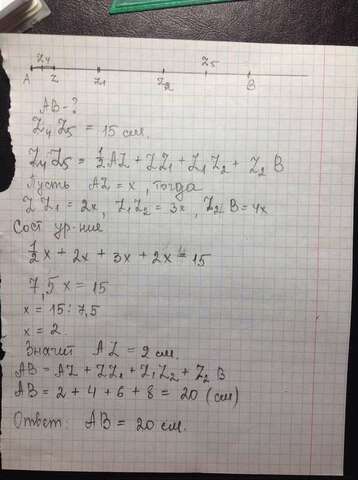 Z₄ Z₅
A Z Z₁ Z₂ B
AB - ?
Z₄Z₅ = 15 см.
Z₄Z₅ = 1/2 AZ + ZZ₁ + Z₁Z₂ + Z₂ B
Пусть AZ = x, тогда
Z Z₁ = 2x, Z₁Z₂ = 3x, Z₂B = 4x
Сост ур-ние
1/2 x + 2x + 3x + 2x = 15
7,5x = 15
x = 15 : 7,5
x = 2.
Значит AZ = 2 см.
AB = AZ + ZZ₁ + Z₁Z₂ + Z₂ B
AB = 2 + 4 + 6 + 8 = 20 (см)
Ответ: AB = 20 см.